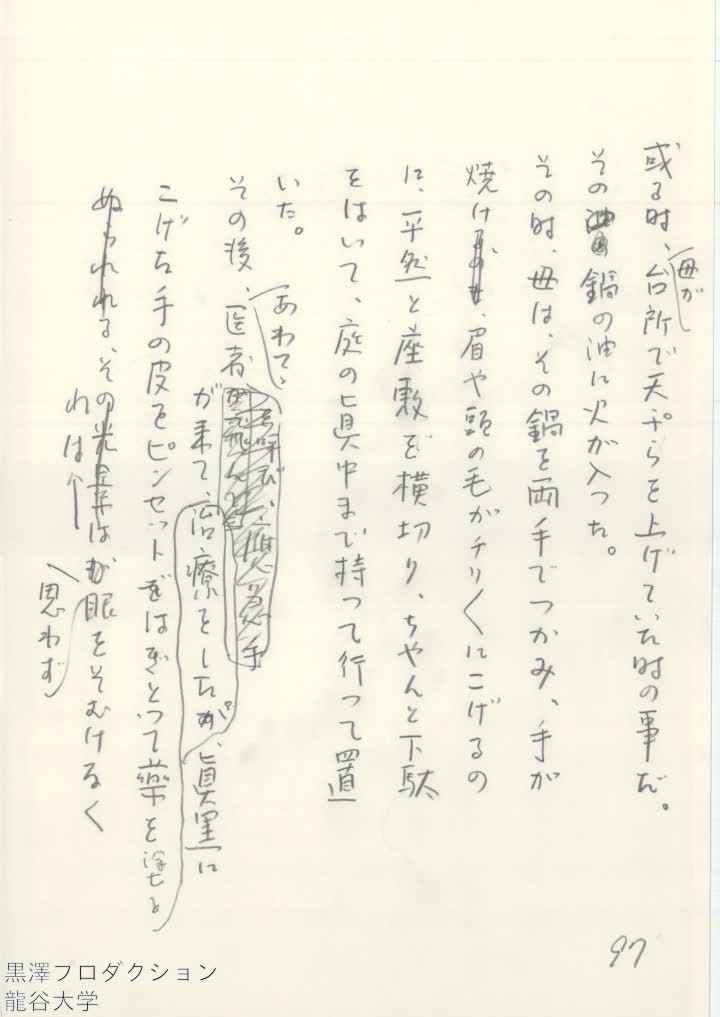 或る時、母が台所で天ぷらを上げていた時の事だ。
その鍋の油に火が入つた。
その時、母は、その鍋を両手でつかみ、手が
焼け、眉や頭の毛がチリ〱にこげるの
に、平然と座敷を横切り、ちやんと下駄
をはいて、庭の眞中まで持つて行つて置
いた。
その後、医者があわてゝ
が来て、治療をしたが、眞黒に
こげた手の皮をピンセットではぎとつて薬を塗る
ぬられれる、その光景は が眼をそむけるく
れは个
思わず
97
黒澤プロダクション
龍谷大学